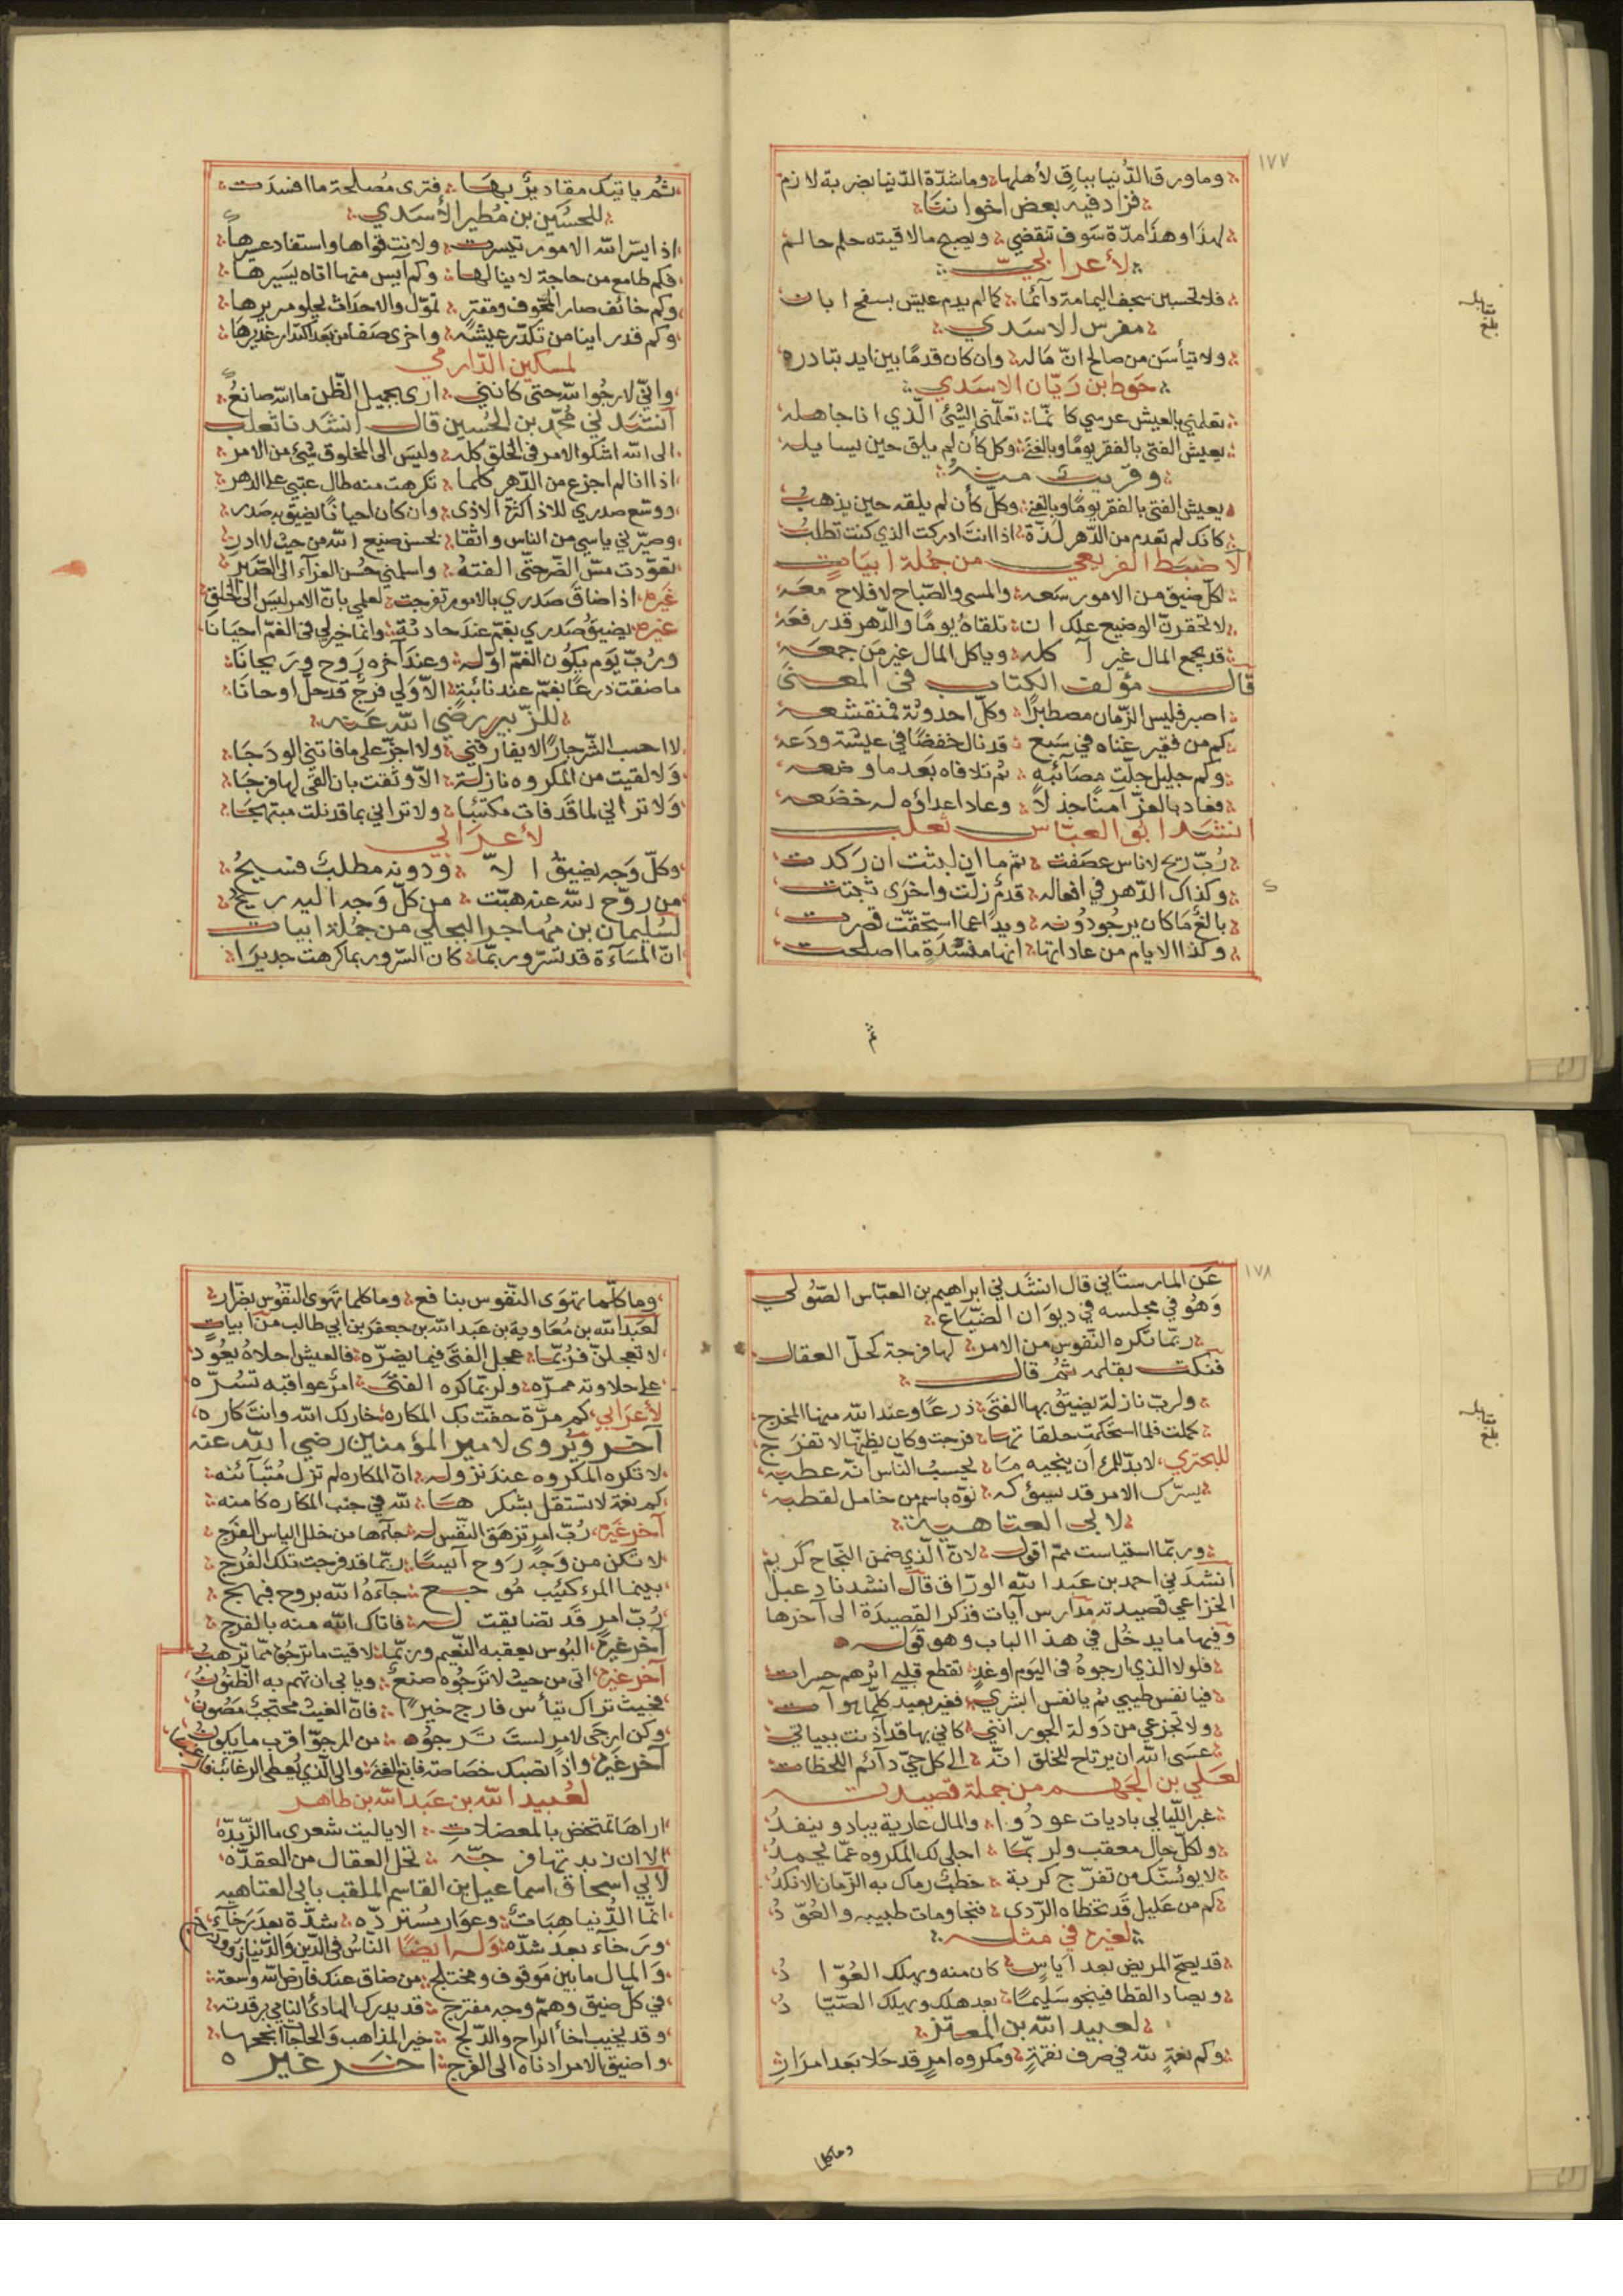 ١٧٧
وما ورق الدنيا بباق لأهلها وما شدة الدنيا بضربة لازم
فزاد فيه بعض اخواننا
لهذا وهذا مدة سوف تنقضي ويصبح ما لاقيته حلم حالم
لأعرابي
فلا تحسبن سجف اليمامة دائما كما لم يدم عيش بسفح ابان
مفرس الاسدي
ولا تيأسن من صالح ان تناله وان كان قدما بين ايد تبادره
حوط بن ريان الاسدي
تعلمني بالعيش عرسي كانما تعلمني الشئ الذي انا جاهله
يعيش الفتى بالفقر يوما وبالغنى وكل كأن لم يلق حين يسايله
وقريب منه
يعيش الفتى بالفقر يوما وبالغنى وكل كأن لم يلقه حين يذهب
كانك لم تعدم من الدهر لذة اذا انت ادركت الذي كنت تطلب
الاضبط القريعي من جملة ابيات
لكل ضيق من الامور سعه والمسى والصباح لا فلاح معه
لا تحقرن الوضيع علك ان تلقاه يوما والدهر قد رفعه
قد يجمع المال غير آكله وياكل المال غير من جمعه
قال مؤلف الكتاب في المعنى
اصبر فليس الزمان مصطبرا وكل احدوثة فمنقشعه
كم من فقير غناه في شبع قد نال خفضا في عيشة ودعه
وكم جليل جلت مصائبه ثم تلافاه بعدما وضعه
فعاد بالعز آمنا جذلا وعاد اعداؤه له خضعه
انشد ابو العباس ثعلب
رب ريح لاناس عصفت ثم ما ان لبثت ان ركدت
وكذاك الدهر في افعاله قدم زلت واخرى ثبتت
بالغ ما كان يرجو دونه ويد عما استحقت قصرت
وكذا الايام من عاداتها انها مفسدة ما اصلحت
ثم
ثم ياتيك مقادير بها فترى مصلحة ما افسدت
للحسين بن مطير الأسدي
اذا يسر الله الامور تيسرت ولانت قواها واستقاد عسيرها
فكم طامع من حاجة لا ينالها وكم آيس منها اتاه يسيرها
وكم خائف صار المخوف ومقتر تمول والاحداث يحلو مريرها
وكم قد راينا من تكدر عيشه واخرى صفا من بعد اكدار غديرها
لمسكين الدارمي
واني لارجوا الله حتى كانني ارى بجميل الظن ما الله صانع
انشدني محمد بن الحسين قال انشدنا ثعلب
الى الله اشكوا الامر في الخلق كله وليس الى المخلوق شئ من الامر
اذا انا لم اجزع من الدهر كلما تكرهت منه طال عتبي على الدهر
ووسع صدري للاذا كثرة الاذى وان كان احيانا يضيق به صدر
وصيرني ياسي من الناس واثقا بحسن صنيع الله من حيث لا ادر
تعودت مس الضر حتى الفته واسلمني حسن العزاء الى الصبر
غيره اذا ضاق صدري بالامور تفرجت لعلمي بان الامر ليس الى الخلق
غيره يضيق صدري بغم عند حادثة وانما خير لي في الغم احيانا
ورب يوم يكون الغم اوله وعند آخره روح وريحانا
ما ضقت ذرعا بغم عند نائبة الا ولي فرج قد حل او حانا
للزبير رضي الله عنه
لا احسب الشر جارا لا يفارقني ولا احز على ما فاتني الودجا
ولا لقيت من المكروه نازلة الا وثقت بان القى لها فرجا
ولا تراني لما قد فات مكتئبا ولا تراني بما قد نلت مبتهجا
لأعرابي
وكل وجه يضيق الا ودونه مطلب فسيح
من روح الله عنه هبت من كل وجه اليه ريح
لسليمان بن مهاجر البجلي من جملة ابيات
ان المساءة قد تسر وربما كان السرور بما كرهت جديرا
١٧٨
عن المارستاني قال انشدني ابراهيم بن العباس الصولي
وهو في مجلسه في ديوان الضياع
ربما تكره النفوس من الامر لها فرجة كحل العقال
فنكت بقلمه ثم قال
ولرب نازلة يضيق بها الفتى ذرعا وعند الله منها المخرج
كملت فلما استحكمت حلقاتها فرجت وكان يظنها لا تفرج
للبحتري لا بد للمرء ان ينجيه ما يحسب الناس انه عطبه
يسرك الامر قد يسؤك نوه باسم من خامل لقطبه
لابي العتاهية
وربما استياست ثم اقول لا ان الذي ضمن النجاح كريم
انشدني احمد بن عبد الله الوراق قال انشدنا دعبل
الخزاعي قصيدته مدارس آيات فذكر القصيدة الى آخرها
وفيها ما يدخل في هذا الباب وهو قوله
فلولا الذي ارجوه في اليوم او غد تقطع قلبي اثرهم حسرات
فيا نفس طيبي ثم يا نفس ابشري فغير بعيد كلما هو آت
ولا تجزعي من دولة الجور انني كاني بها قد آذنت ببياتي
عسى الله ان يرتاح للخلق انه الى كل حي دائم اللحظات
لعلي بن الجهم من جملة قصيدته
غير الليالي باديات عود والمال عارية يباد وينفد
ولكل حال معقب ولربما اجلى لك المكروه عما يحمد
لا يوئسنك من تفرج كربة خطب رماك به الزمان الانكد
كم من عليل قد تخطاه الردى فنجا ومات طبيبه والعود
لغيره في مثله
قد يصح المريض بعد اياس كان منه ويهلك العواد
ويصاد القطا فينجو سليما بعد هلك ويهلك الصياد
لعبيد الله بن المعتز
وكم نعمة لله في صرف نقمة ومكروه امر قد حلا بعد امرار
وما كلما
وما كلما تهوى النفوس بنافع وما كلما تهوى النفوس بضرار
لعبد الله بن معاوية بن عبد الله بن جعفر بن ابي طالب من ابيات
لا تعجلن فربما عجل الفتى فيما يضره فالعيش احلاه يعود
على حلاوته بمره ولربما كره الفتى امر عواقبه تسره
لأعرابي كم مرة حفت بك المكاره خار لك الله وانت كاره
آخر ويروى لامير المؤمنين رضي الله عنه
لا تكره المكروه عند نزوله ان المكاره لم تزل متباينه
كم نعمة لا تستقل بشكرها لله في جنب المكاره كامنه
آخر غيره رب امر تزهق النفس له جاءها من خلل الياس الفرج
لا تكن من وجه روح آيسا ربما قد فرجت تلك الفرج
بينما المرء كئيب موجع جاءه الله بروح فبهج
رب امر قد تضايقت له فاتاك الله منه بالفرج
آخر غيره البوس يعقبه النعيم وربما لاقيت ما ترجو مما ترهب
آخر غيره اتى من حيث لا ترجوه صنع ويابى ان تهم به الظنون
فحيث تراك تيأس فارج خيرا فان الغيث محتجب مصون
وكن ارجى لامر لست ترجوه من المرجو اقرب ما يكون
آخر غيره واذا تصبك خصاصة فابغ الغنى والى الذي يعطي الرغائب فارغب
لعبيد الله بن عبد الله بن طاهر
اراها تمخض بالمعضلات الا يا ليت شعري ما الزبده
الا ان زبدتها فرجة تحل العقال من العقده
لابي اسحاق اسماعيل بن القاسم الملقب بابي العتاهيه
انما الدنيا هبات وعوار مسترده شدة بعد رخاء
ورخاء بعد شده وله ايضا الناس في الدين والدنيا
والمال ما بين موقوف ومختلج من ضاق عنك فارض الله وسعة
في كل ضيق وهم وجه مفترج قد يدرك الهادئ النامي برقدته
وقد يخيب اخا الراح والدلج خير المذاهب والحاجات انجحها
واضيق الامر ادناه الى الفرج اخر غيره